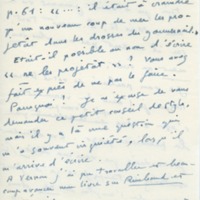 p. 61 : " ... : il était à craindre
qu'un nouveau coup de mer les pro-
jetât dans les drosses du gouvernail.
était-il possible au nom d'écrire
" ne les projetât " ? Vous avez
fait exprès de ne pas le faire.
Pourquoi ? Je m'excuse de vous
demander ce petit conseil de style,
mais il y a là une question qui
m'a souvent inquiété, lorsqu'il
m'arrive d'écrire.
A Vernon j'ai pu travailler et
un livre sur Rimbaud et